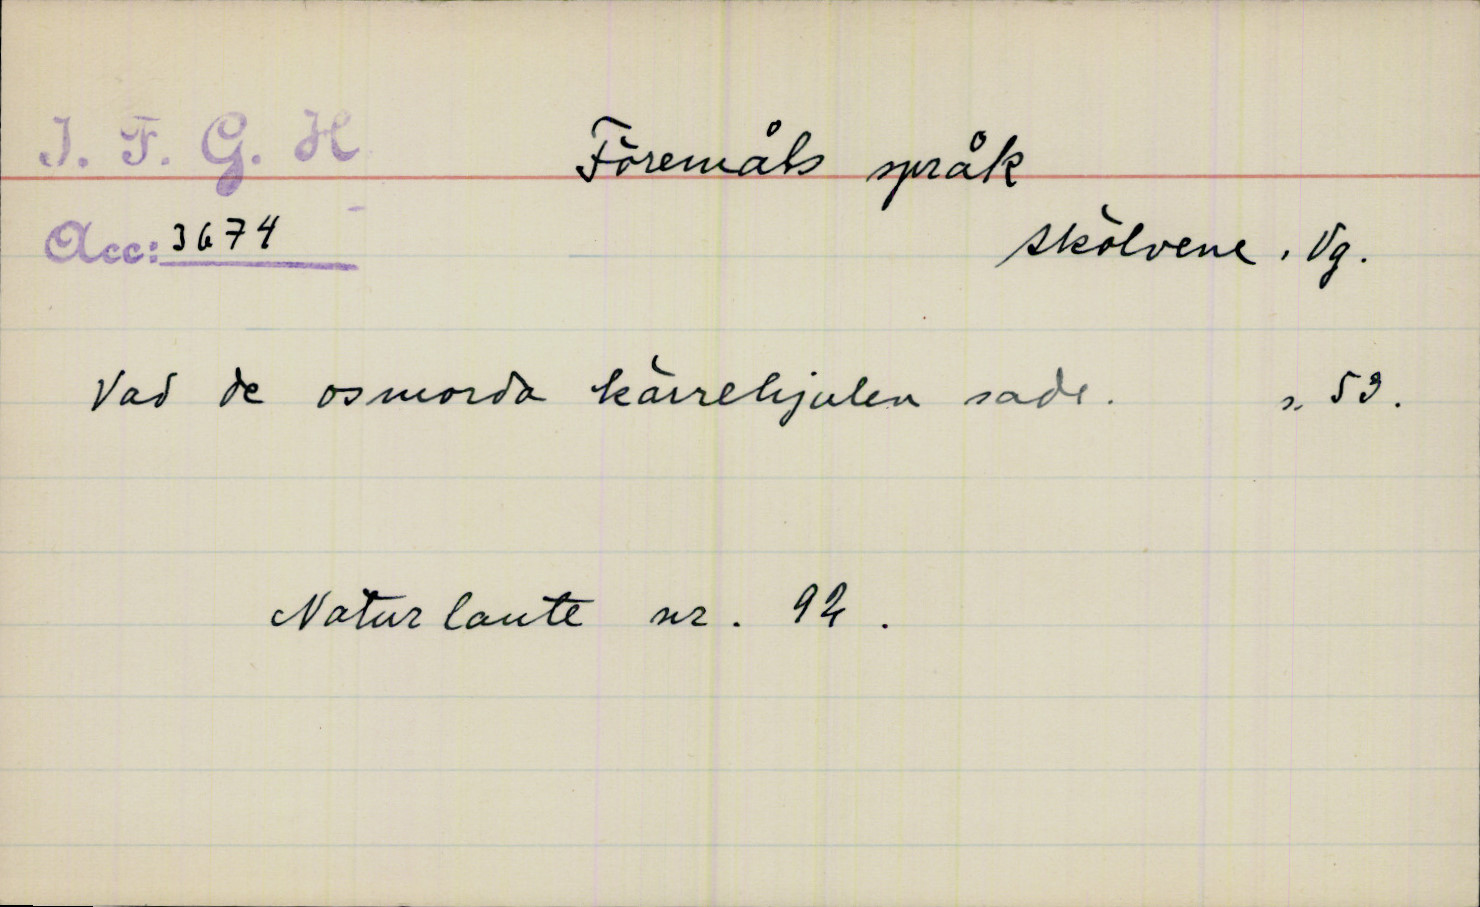 I. F. G. H
Föremåls språk
Acc: 3674
Skölvene, Vg.
Vad de osmorda kärrehjulen sade. s. 53.
Naturlaute nr. 92.